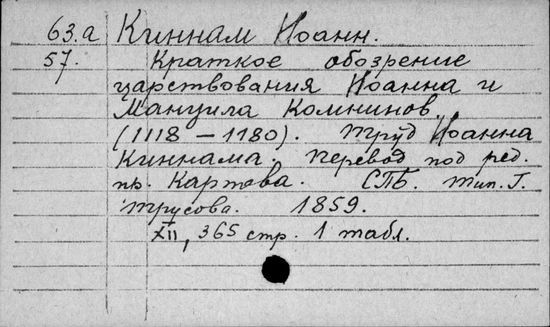 63.а Киннам Иоанн.
57. Краткое обозрение
царствования Иоанна и
Мануила Комнинов
(1118 – 1180). Труд Иоанна
Киннама. Перевод под ред.
пр. Карпова. СПБ. Тип. Г.
Трусова. 1859.
XII, 365 стр. 1 табл.